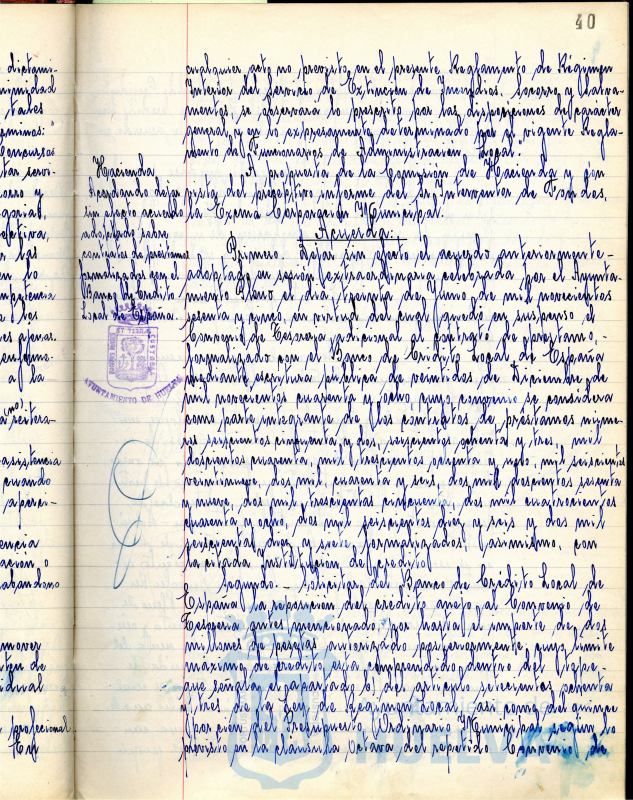 40
cualquier acto no previsto en el presente Reglamento de Régimen
Interior del servicio de Extinción de Incendios, socorro y Salva-
mentos, se observará lo prescrito por las disposiciones de carácter
general, y en lo expresamente determinado por el vigente Regla-
mento de Funcionarios de Administración Local."
A propuesta de la Comisión de Hacienda y con
vista del preceptivo informe del Sr. Interventor de Fondos,
la Excma Corporación Municipal.
Acuerda:
Primero. Dejar sin efecto el acuerdo anteriormente
adoptado en sesión extraordinaria celebrada por el Ayunta-
miento Pleno el día treinta de Junio de mil novecientos
sesenta y cinco, en virtud del cual quedó en suspenso el
Convenio de Tesorería adicional al contrato de préstamo,
formalizado por el Banco de Crédito Local de España
mediante escritura pública de veintidós de Diciembre de
mil novecientos cuarenta y ocho, cuyo convenio se considera
como parte integrante de los contratos de préstamos núme-
ros seiscientos cincuenta y dos, seiscientos ochenta y tres, mil
doscientos cuarenta, mil trescientos ochenta y ocho, mil seiscientos
veintinueve, dos mil cuarenta y seis, dos mil doscientos sesenta
y nueve, dos mil trescientos cincuenta, dos mil cuatrocientos
cuarenta y ocho, dos mil seiscientos diez y seis y dos mil
seiscientos diez y siete, formalizados, asimismo, con
la citada Institución de crédito.
Segundo.- Solicitar del Banco de Crédito Local de
España la reposición del crédito anejo al Convenio de
Tesorería antes mencionado, por hasta el importe de dos
millones de pesetas autorizado posteriormente cuyo límite
máximo de crédito está comprendido dentro del tope
que señala el apartado b) del artículo setecientos setenta
y tres de la Ley de Régimen Local, así como del quince
por cien del Presupuesto Ordinario Municipal según lo
previsto en la cláusula octava del repetido Convenio de
Hacienda
Acordando dejar
sin efecto acuerdo
adoptado sobre
contratos de préstamos
formalizados con el
Banco de Crédito
Local de España.
AYUNTAMIENTO DE HUELVA
dictami-
tales
Concurso
servi-
y
las
lo
a la
asistencia
cuando
o
abandono
mover
de
profesional
HUELVA